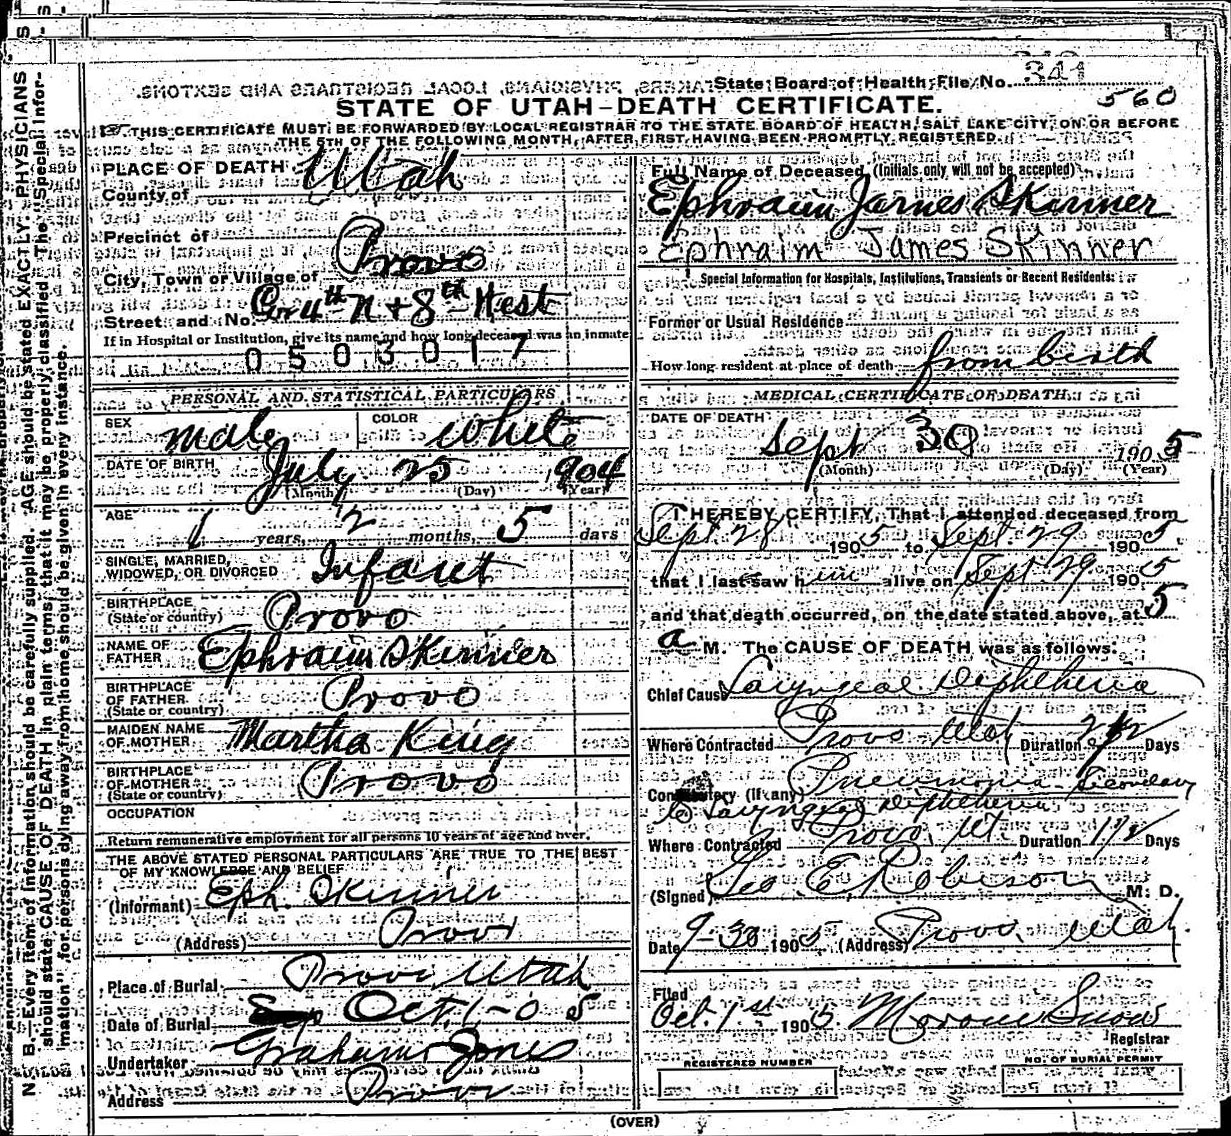 State Board of Health File No. 341
560
STATE OF UTAH-DEATH CERTIFICATE.
THIS CERTIFICATE MUST BE FORWARDED BY LOCAL REGISTRAR TO THE STATE BOARD OF HEALTH, SALT LAKE CITY, ON OR BEFORE
THE 5TH OF THE FOLLOWING MONTH, AFTER FIRST HAVING BEEN PROMPTLY REGISTERED.
PLACE OF DEATH
County of Utah
Precinct of
City, Town or Village of Provo
Street and No. Cor 4th N + 8th West
If in Hospital or Institution, give its name and how long deceased was an inmate
0503017
PERSONAL AND STATISTICAL PARTICULARS
SEX male COLOR White
DATE OF BIRTH July 25 1904
(Month) (Day) (Year)
AGE 1 years, 2 months, 5 days
SINGLE, MARRIED, WIDOWED, OR DIVORCED Infant
BIRTHPLACE (State or country) Provo
NAME OF FATHER Ephraim Skinner
BIRTHPLACE OF FATHER. (State or country) Provo
MAIDEN NAME OF MOTHER Martha King
BIRTHPLACE OF MOTHER (State or country) Provo
OCCUPATION
Return remunerative employment for all persons 10 years of age and over.
THE ABOVE STATED PERSONAL PARTICULARS ARE TRUE TO THE BEST
OF MY KNOWLEDGE AND BELIEF
(Informant) Eph. Skinner
(Address) Provo
Place of Burial Provo, Utah
Date of Burial Oct. 1-05
Undertaker Graham Jones
Address Provo
Full Name of Deceased (Initials only will not be accepted)
Ephraim James Skinner
Ephraim James Skinner
Special Information for Hospitals, Institutions, Transients or Recent Residents:
Former or Usual Residence
How long resident at place of death from birth
MEDICAL CERTIFICATE OF DEATH
DATE OF DEATH
Sept 30 1905
(Month) (Day) (Year)
I HEREBY CERTIFY, That I attended deceased from
Sept 28 1905 to Sept 29 1905
that I last saw him alive on Sept 29 1905
and that death occurred, on the date stated above, at 5
a M. The CAUSE OF DEATH was as follows:
Chief Cause Laryngeal Diphtheria
Where Contracted Provo Utah Duration 2 1/2 Days
Contributory (if any) Pneumonia Secondary
to Laryngeal Diphtheria
Where Contracted Provo, Ut. Duration 1 1/2 Days
(Signed) Geo E. Robison M. D.
Date 9-30 1905 (Address) Provo, Utah.
Filed
Oct. 1st 1905 Moroni Snow
Registrar
REGISTERED NUMBER NO. OF BURIAL PERMIT
(OVER)
N. B.—Every item of information should be carefully supplied. AGE should be stated EXACTLY. PHYSICIANS
should state CAUSE OF DEATH in plain terms, that it may be properly classified. The "Special Infor-
mation" for persons dying away from home should be given in every instance.